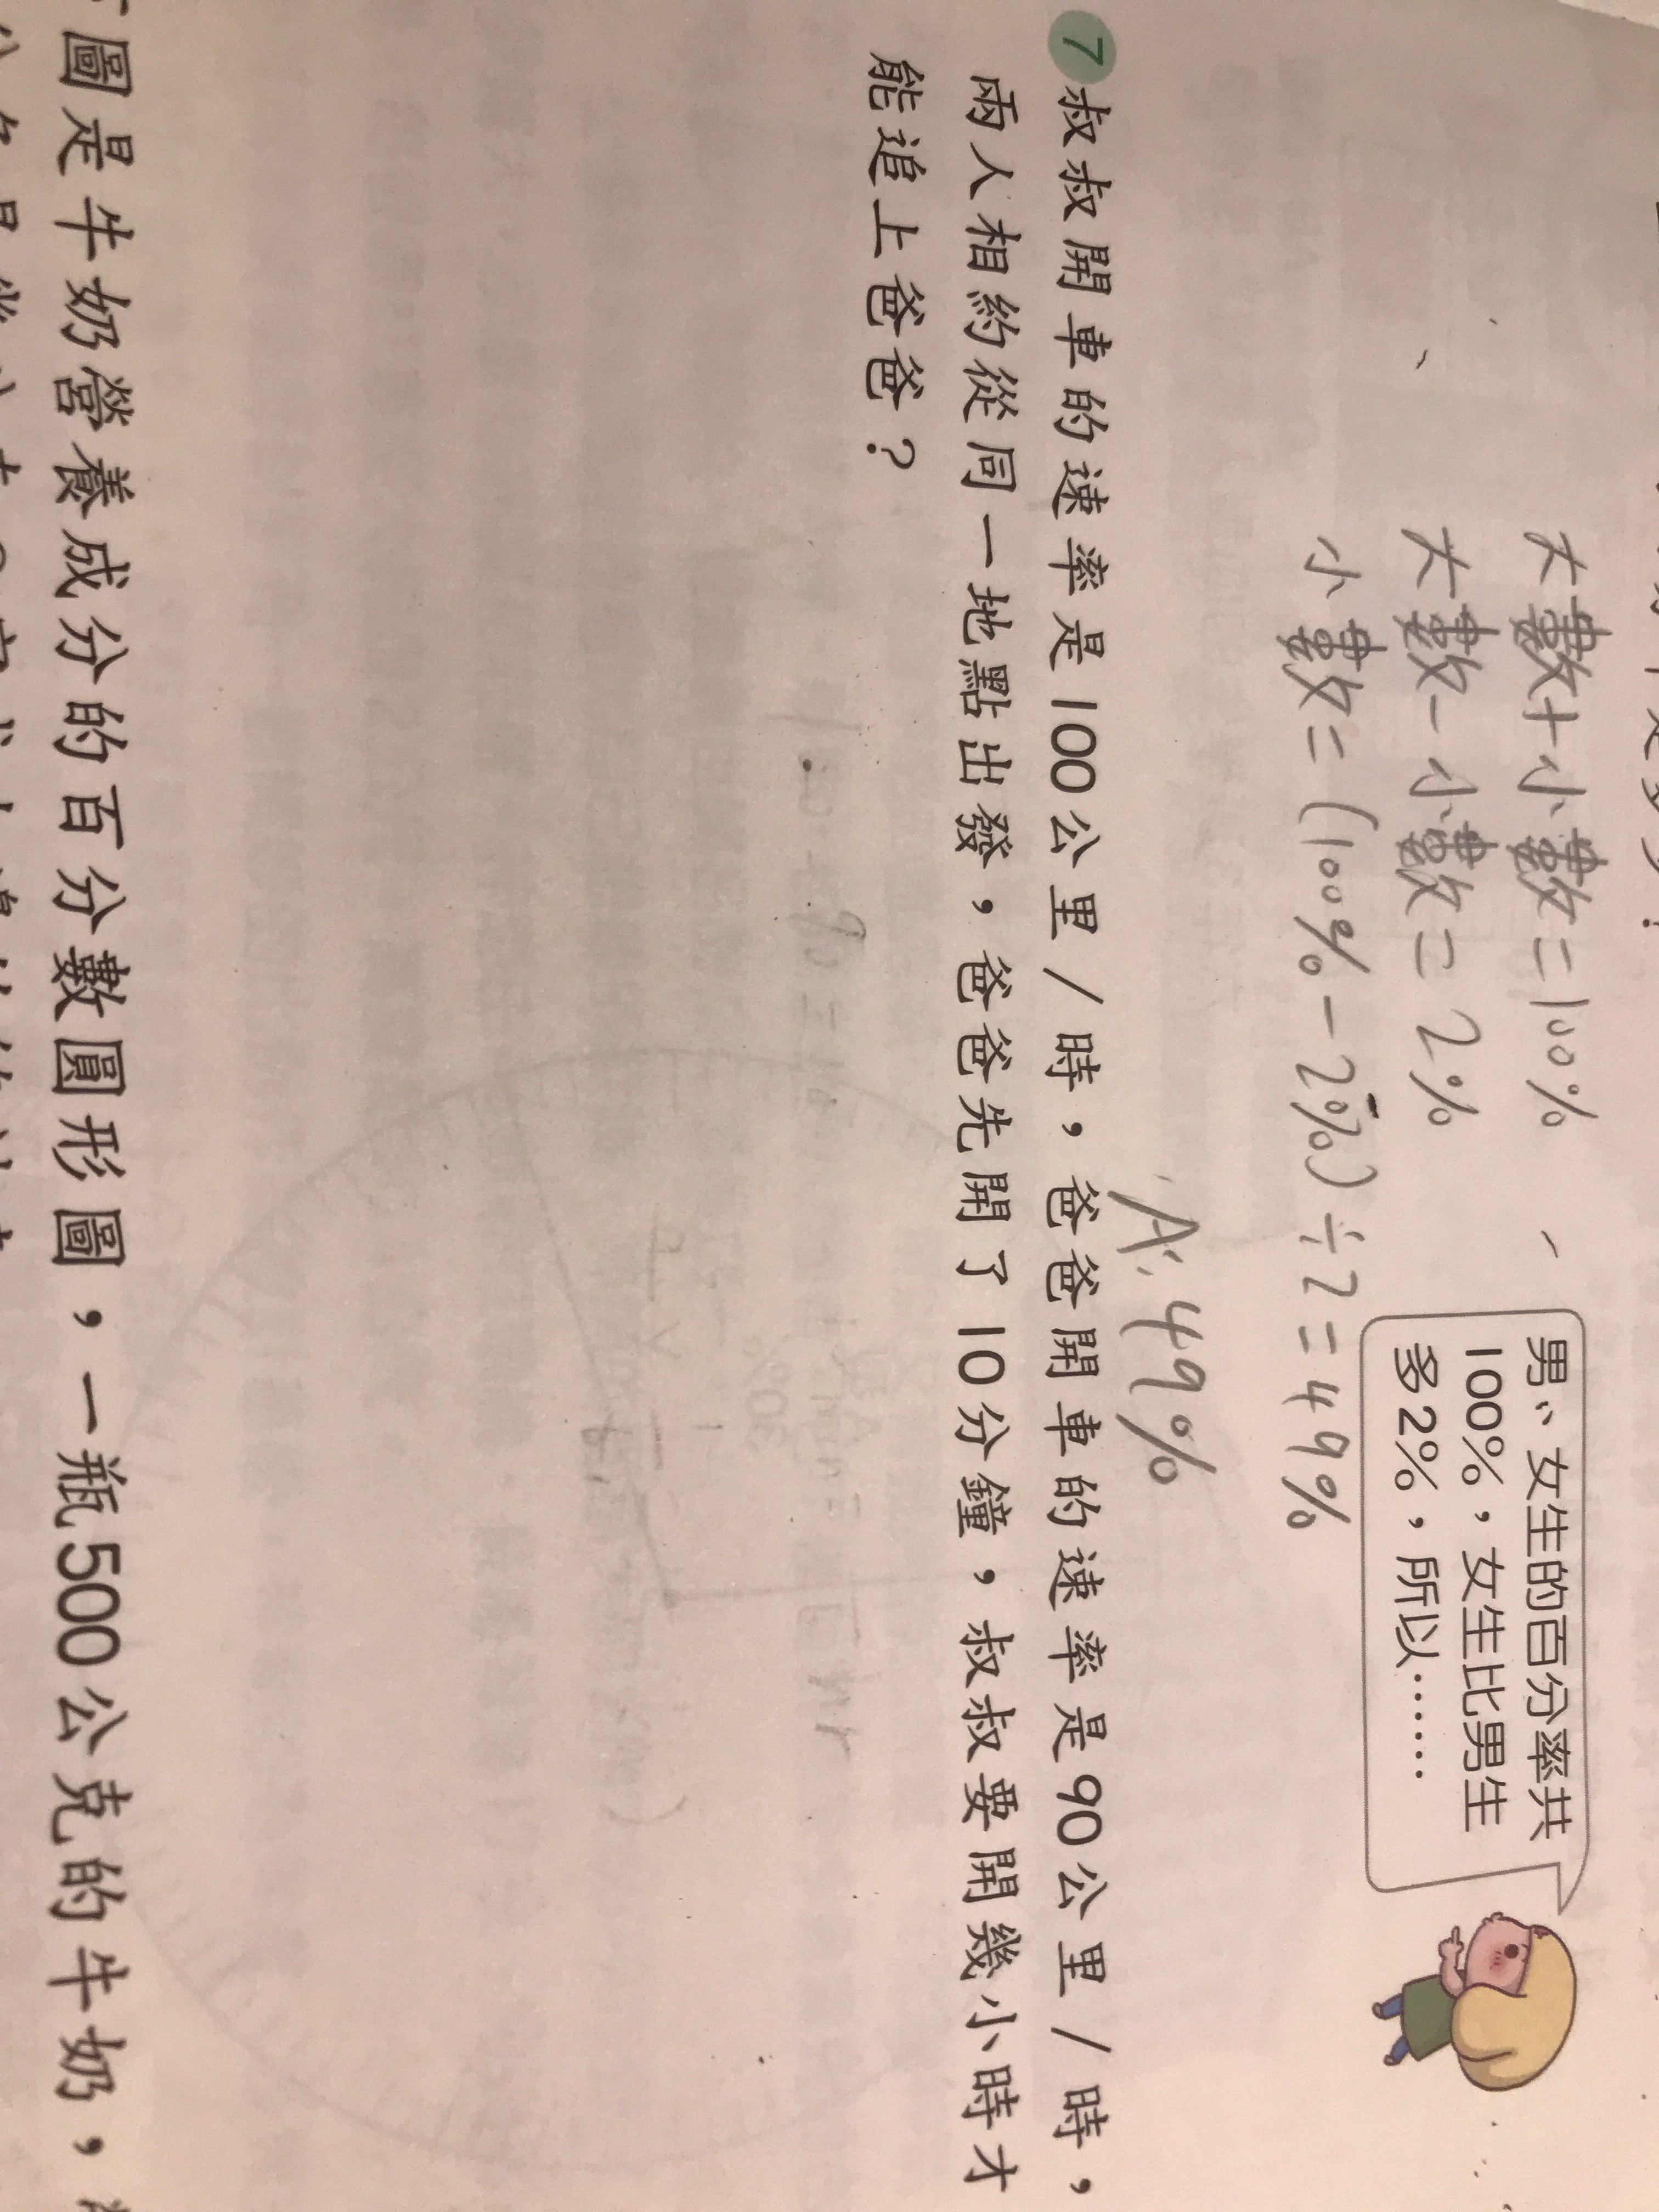 大數+小數=100%
大數-小數=2%
小數=(100%-2%)÷2=49%
A:49%
男、女生的百分率共
100%,女生比男生
多2%,所以……
7 叔叔開車的速率是100公里/時,爸爸開車的速率是90公里/時,
兩人相約從同一地點出發,爸爸先開了10分鐘,叔叔要開幾小時才
能追上爸爸?
圖是牛奶營養成分的百分數圓形圖,一瓶500公克的牛奶,